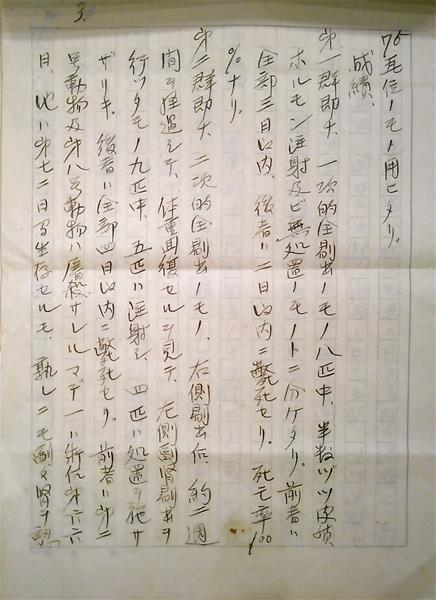 3.
75瓦位ノモノ用ヒタリ。
成績、
第一群即チ、一次的全剔出ノモノ八匹中、半数ヅツ皮質
ホルモン注射及ビ無処置ノモノトニ分ケタリ。前者ハ
全部三日以内、後者ハ二日以内ニ斃死セリ。死亡率100
%ナリ。
第二群即チ、二次的全剔出ノモノ、右側剔出后、約二週
間ヲ経過シテ、体重回復セルヲ見テ、左側副腎剔出ヲ
行ツタモノ九匹中、五匹ハ注射シ 四匹ハ処置ヲ施サ
ザリキ。後者ハ全部四日以内ニ斃死セリ。前者ハ第二
号動物及第八号動物ハ屠殺サレルマデ一ハ術后第六六
日、他ハ第七二日目生存セルモ、孰レニモ副腎ヲ認